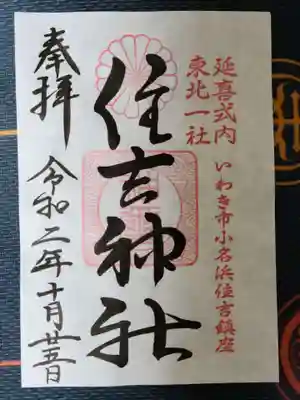 延喜式内
東北一社
いわき市小名浜住吉鎮座
住吉神社
奉拝
令和二年十月廿五日